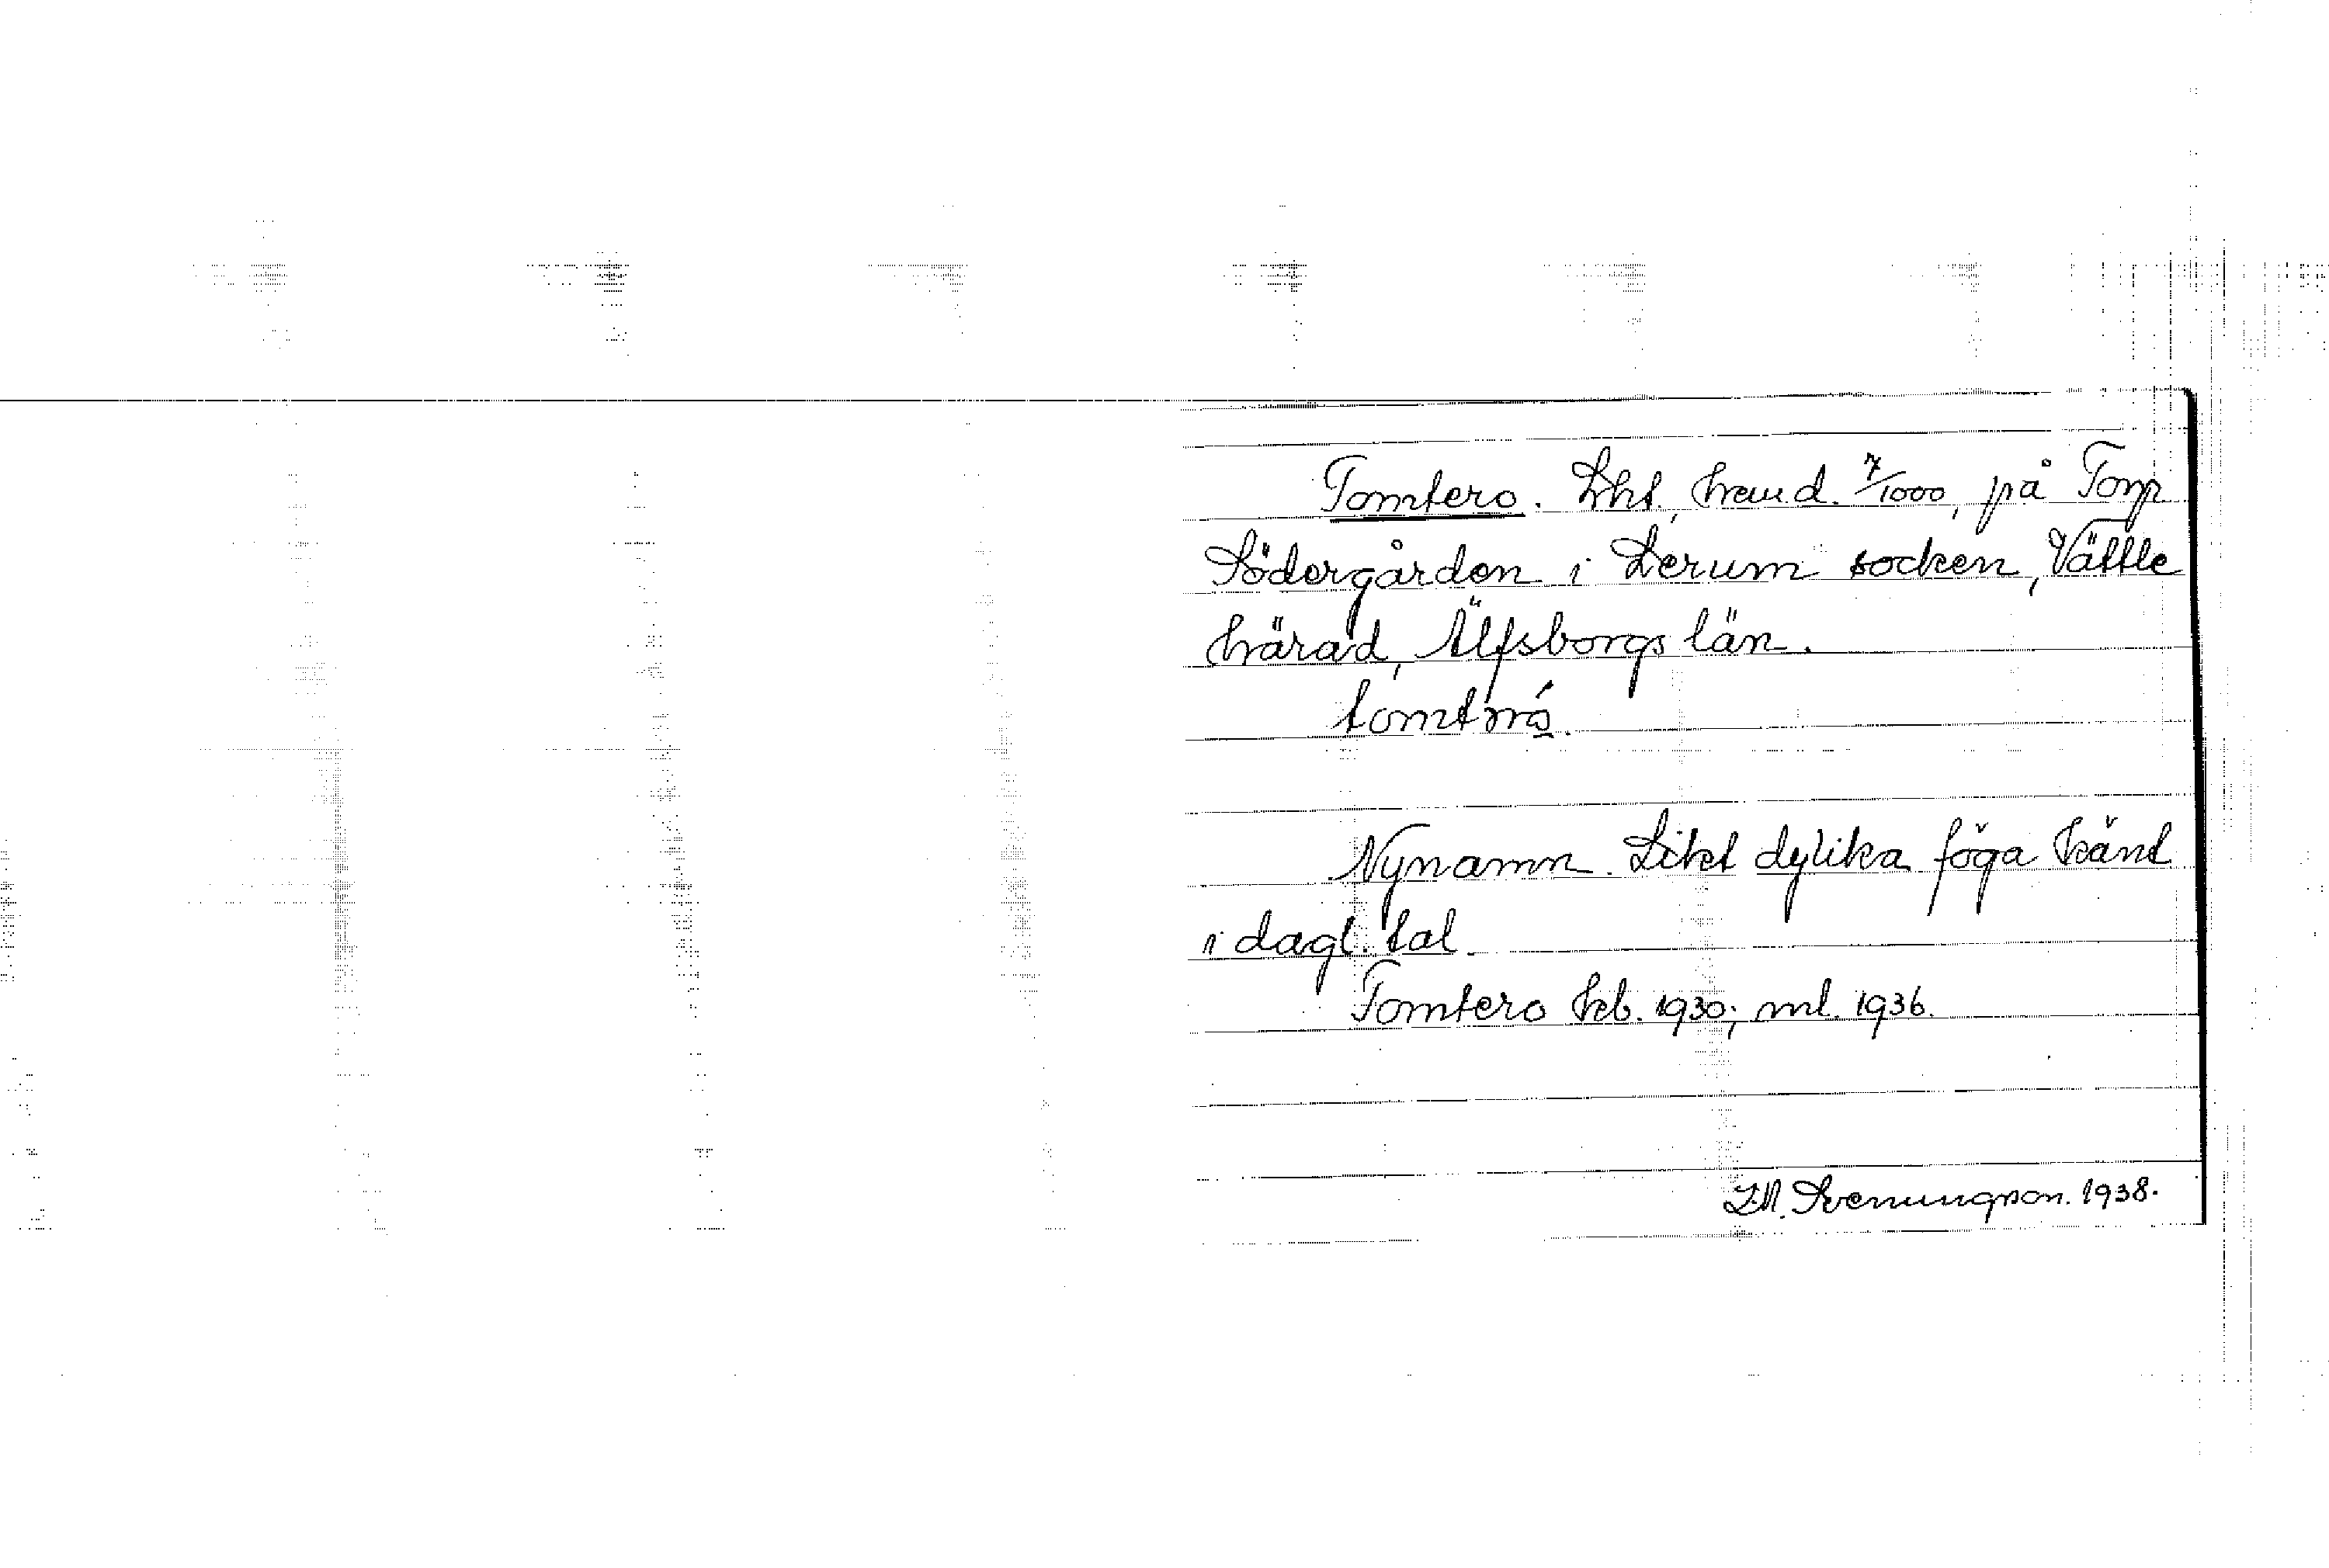 Tomtero. Lht, hemd. 7/1000, på Torp
Södergården i Lerum socken, Vättle
härad, Älfsborgs län.
tomtrró.
Nynamn. Likt dylika föga känt
i dagl. tal.
Tomtero kb. 1930; ml. 1936.
Svenungson. 1938.